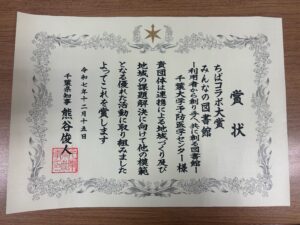 賞状
ちばコラボ大賞
みんなの図書館
―利用者から創り手へ、共に創る図書館―
千葉大学予防医学センター 様
貴団体は連携による地域づくり及び
地域の課題解決に向けて他の模範
となる優れた活動に取り組みました
よってこれを賞します
令和七年十二月十五日
千葉県知事 熊谷俊人